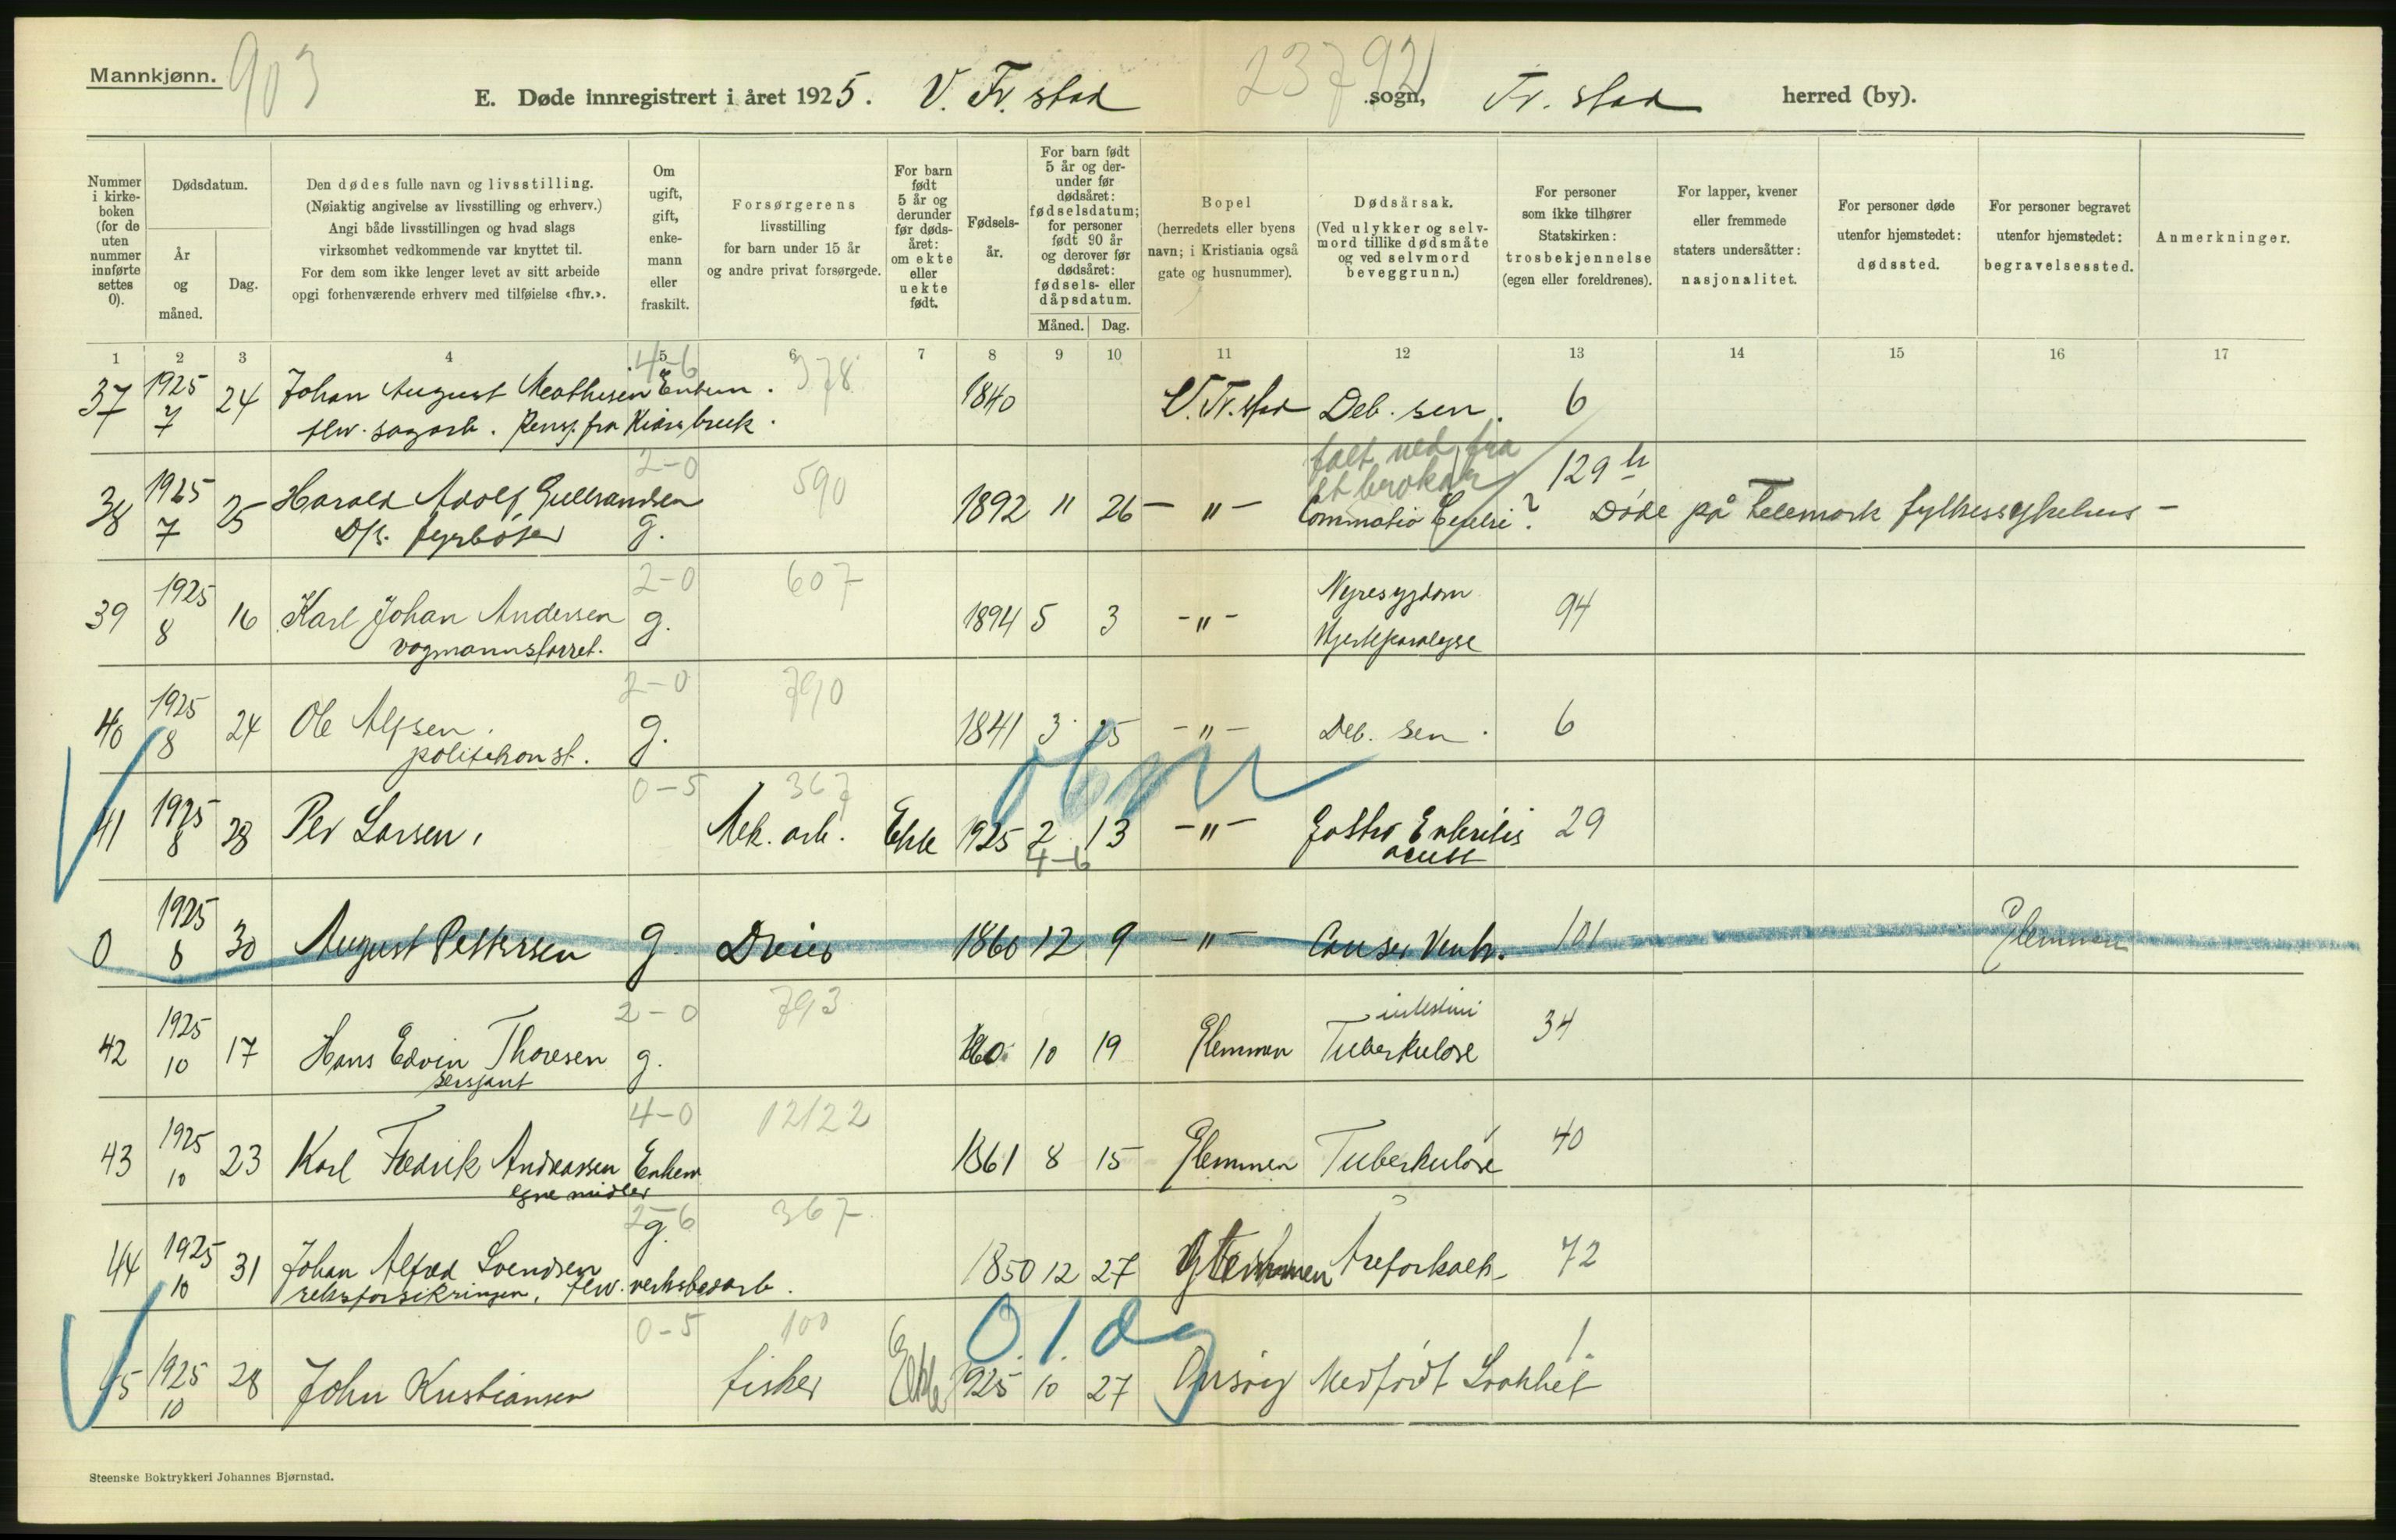 Mannkjønn.
903
23792
E. Døde innregistrert i året 1925. V. Fr. stad sogn, Fr. stad herred (by).
Nummer i kirke-boken (for de uten nummer innførte settes 0).
Dødsdatum.
År og måned.
Dag.
Den dødes fulle navn og livsstilling.
(Nøiaktig angivelse av livsstilling og erhverv.)
Angi både livsstillingen og hvad slags
virksomhet vedkommende var knyttet til.
For dem som ikke lenger levet av sitt arbeide
opgi forhenværende erhverv med tilføielse «fhv.».
Om ugift, gift, enke-mann eller fraskilt.
Forsørgerens
livsstilling
for barn under 15 år
og andre privat forsørgede.
For barn født 5 år og derunder før døds-året: om ekte eller uekte født.
Fødsels-år.
For barn født 5 år og der-under før dødsåret: fødselsdatum; for personer født 90 år og derover før dødsåret: fødsels- eller dåpsdatum.
Måned. Dag.
Bopel
(herredets eller byens
navn; i Kristiania også
gate og husnummer).
Dødsårsak.
(Ved ulykker og selv-
mord tillike dødsmåte
og ved selvmord
beveggrunn.)
For personer
som ikke tilhører
Statskirken:
trosbekjennelse
(egen eller foreldrenes).
For lapper, kvener
eller fremmede
staters undersåtter:
nasjonalitet.
For personer døde
utenfor hjemstedet:
dødssted.
For personer begravet
utenfor hjemstedet:
begravelsessted.
Anmerkninger.
1 2 3 4 5 6 7 8 9 10 11 12 13 14 15 16 17
4-6 378
37 1925 7 24 Johan August Mathisen Enkem. 1840 V. Fr. stad Deb. sen. 6
fhv. sagarb. Pensj. fra Kiærs bruk.
2-0 590 falt ned fra et brokar 129 h
38 1925 7 25 Harald Adolf Gulbrandsen g. 1892 11 26 -"- Commotio Cerebri? Døde på Telemark fylkessykehus -
D/s. fyrbøter
2-0 607
39 1925 8 16 Karl Johan Andersen g. 1894 5 3 -"- Nyresygdom Hjerteparalyse 94
vognmannsforret.
2-0 790
40 1925 8 24 Ole Alfsen g. 1841 3 15 -"- Deb. sen. 6
politikonst.
0-5 367
41 1925 8 28 Per Larsen, Mek. arb. Ekte 1925 2 13 -"- Gastro Enteritis acuta 29
4-6
0 1925 8 30 August Pettersen g. Dreier 1860 12 9 -"- Cancer Ventr. 101 Glemmen
2-0 793
42 1925 10 17 Hans Edvin Thoresen g. 1860 10 19 Glemmen Tuberkulose intestini 34
sersjant
4-0 12122
43 1925 10 23 Karl Fredrik Andreassen Enkem 1861 8 15 Glemmen Tuberkulose 40
egne midler
2-6 367
44 1925 10 31 Johan Alfred Svendsen g. 1850 12 27 Glemmen Åreforkalk- 72
fhv. verkstedarb.
0-5 100 0. 1. dg
45 1925 10 28 John Kristiansen fisker Ekte 1925 10 27 Onsøy Medfødt Svakhet 1.
Steenske Boktrykkeri Johannes Bjørnstad.